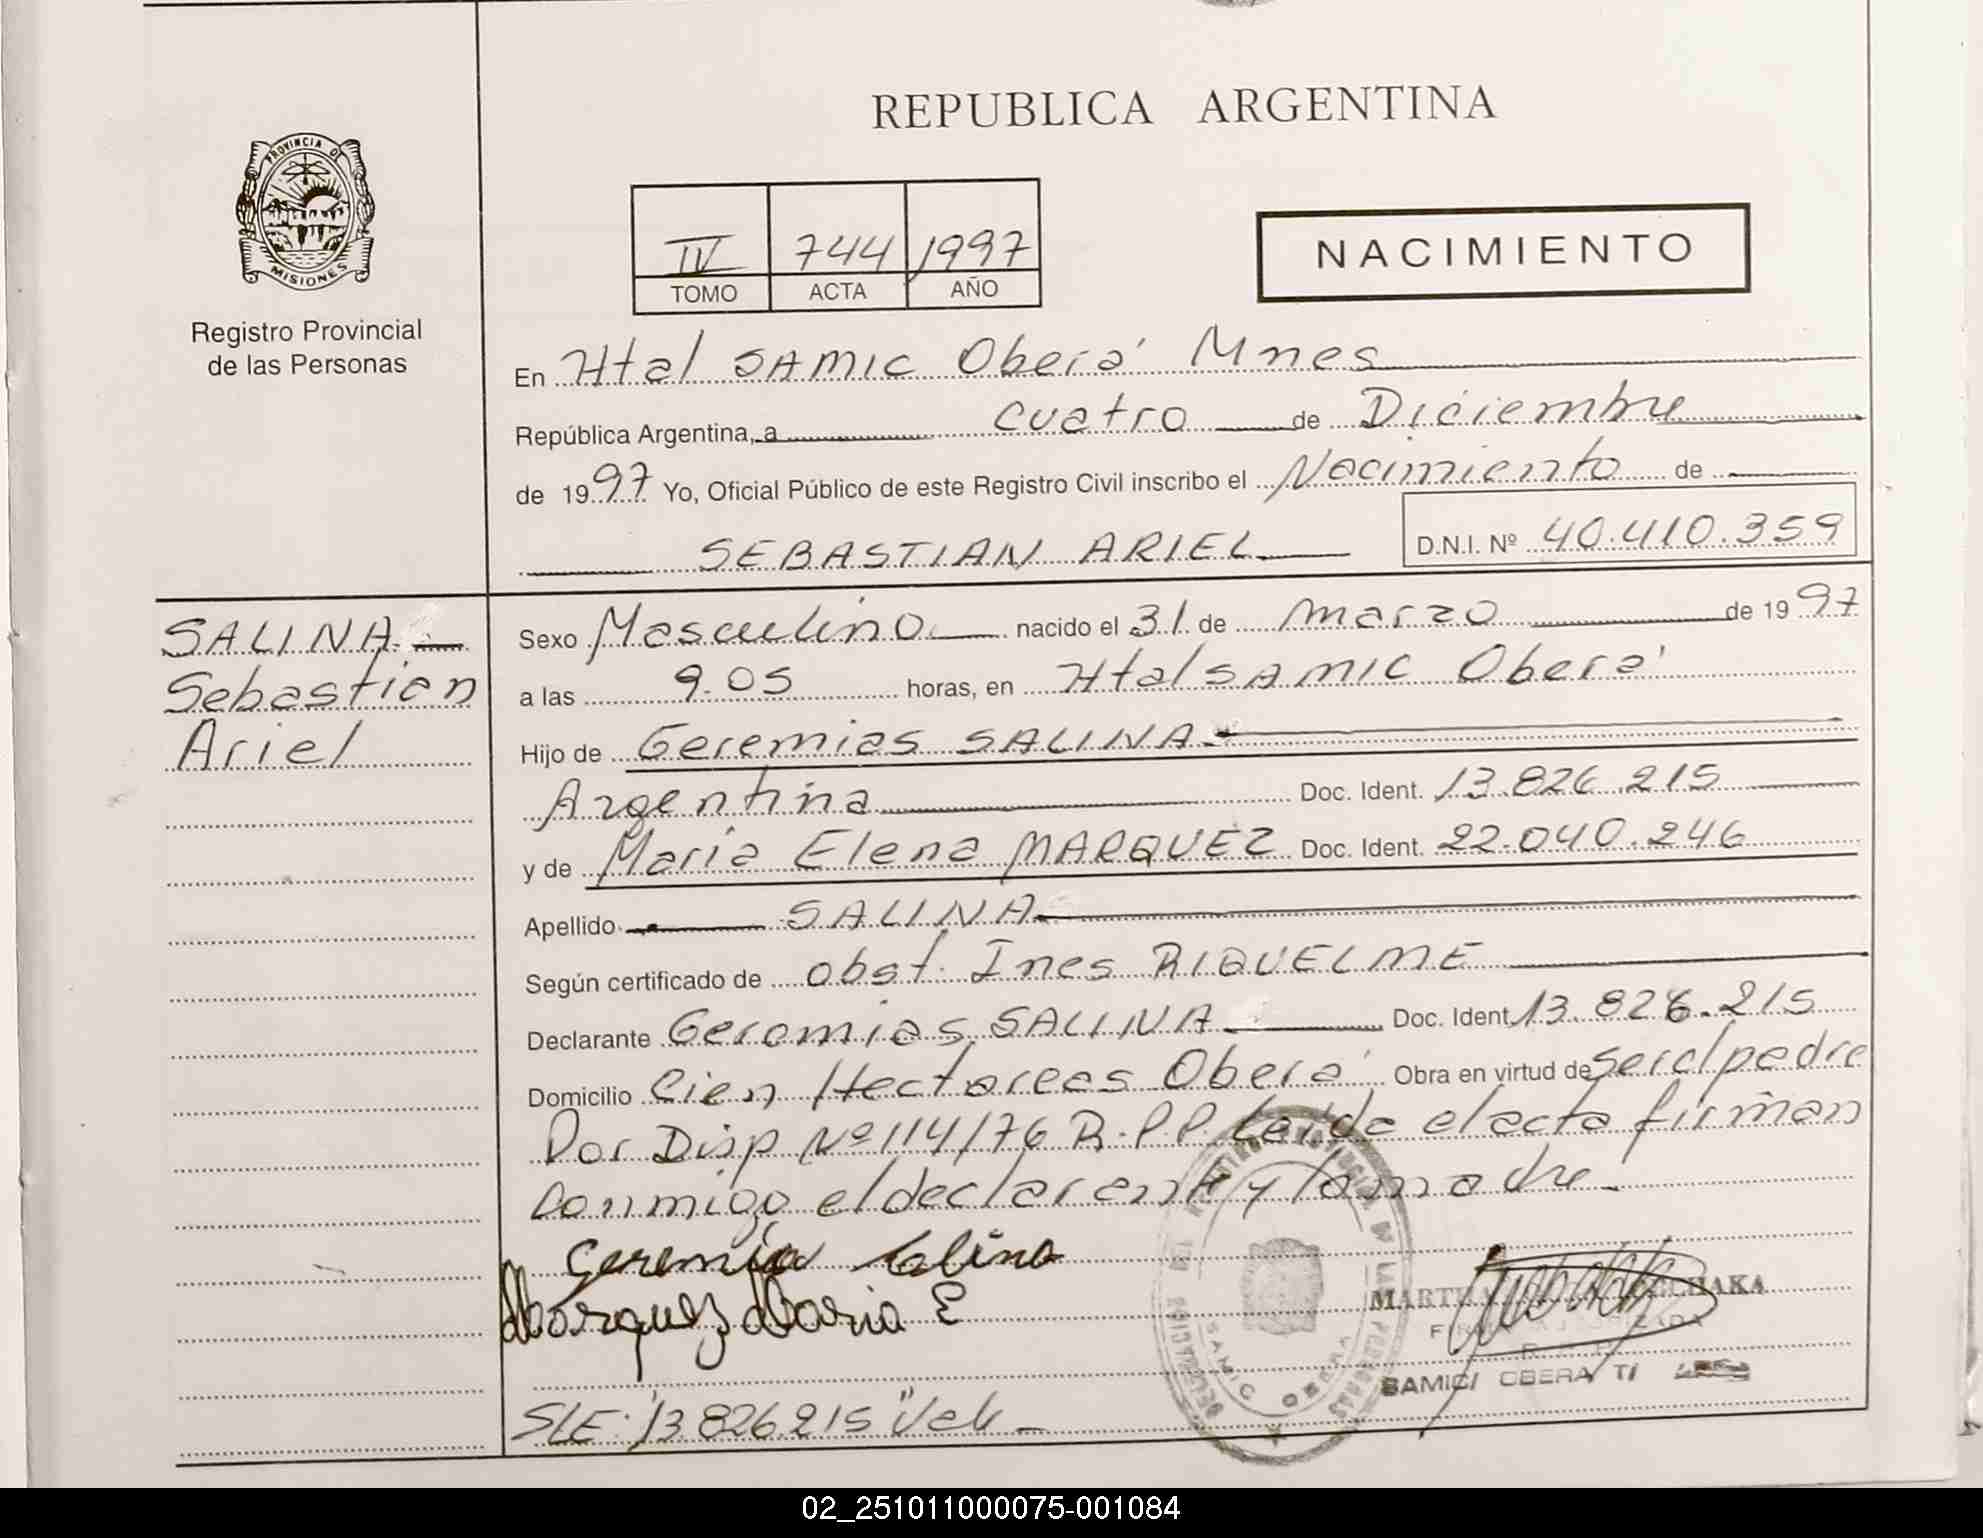 REPUBLICA ARGENTINA
PROVINCIA DE
MISIONES
Registro Provincial
de las Personas
IV 744 1997
TOMO ACTA AÑO
NACIMIENTO
En Htal SAMIC Oberá Mnes
República Argentina, a cuatro de Diciembre
de 1997 Yo, Oficial Público de este Registro Civil inscribo el Nacimiento de
SEBASTIAN ARIEL D.N.I. Nº 40.410.359
SALINA
Sebastian
Ariel
Sexo Masculino nacido el 31 de marzo de 1997
a las 9.05 horas, en Htal SAMIC Oberá
Hijo de Geremias SALINA
Argentina Doc. Ident. 13.826.215
y de Maria Elena MARQUEZ Doc. Ident. 22.040.246
Apellido SALINA
Según certificado de obst. Ines RIQUELME
Declarante Geremias SALINA Doc. Ident. 13.826.215
Domicilio Cien Hectareas Oberá Obra en virtud de ser el padre
Por Disp Nº 114/76 R.P.P. Leída el acta firman
conmigo el declarante y la madre.
Geremia Salina
Marquez Maria E
MARTHA
SAMIC OBERA
SAMIC/ OBERA T/
S/E: 13 826 215 "Vale
02_251011000075-001084